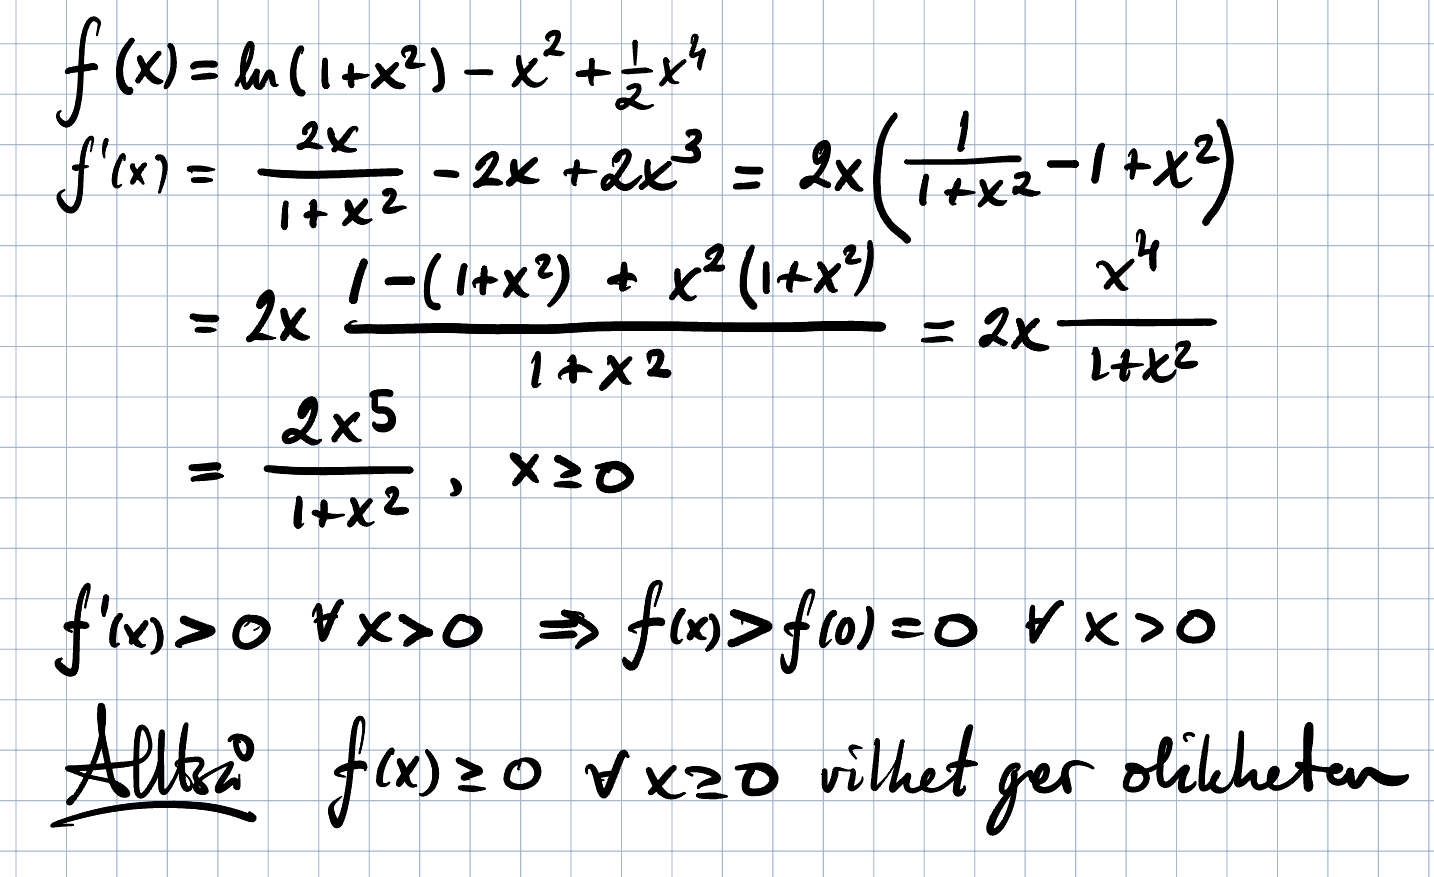 f(x) = ln(1+x²) − x² + ½x⁴
f'(x) = 2x/(1+x²) − 2x + 2x³ = 2x(1/(1+x²) − 1 + x²)
= 2x (1−(1+x²) + x²(1+x²))/(1+x²) = 2x x⁴/(1+x²)
= 2x⁵/(1+x²), x ≥ 0
f'(x) > 0 ∀ x > 0 ⇒ f(x) > f(0) = 0 ∀ x > 0
Alltså f(x) ≥ 0 ∀ x ≥ 0 vilket ger olikheten